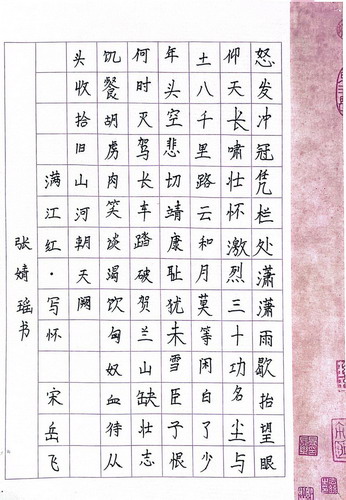 怒发冲冠凭栏处潇潇雨歇抬望眼
仰天长啸壮怀激烈三十功名尘与
土八千里路云和月莫等闲白了少
年头空悲切靖康耻犹未雪臣子恨
何时灭驾长车踏破贺兰山缺壮志
饥餐胡虏肉笑谈渴饮匈奴血待从
头收拾旧山河朝天阙
满江红·写怀 宋岳飞
张婧瑶书